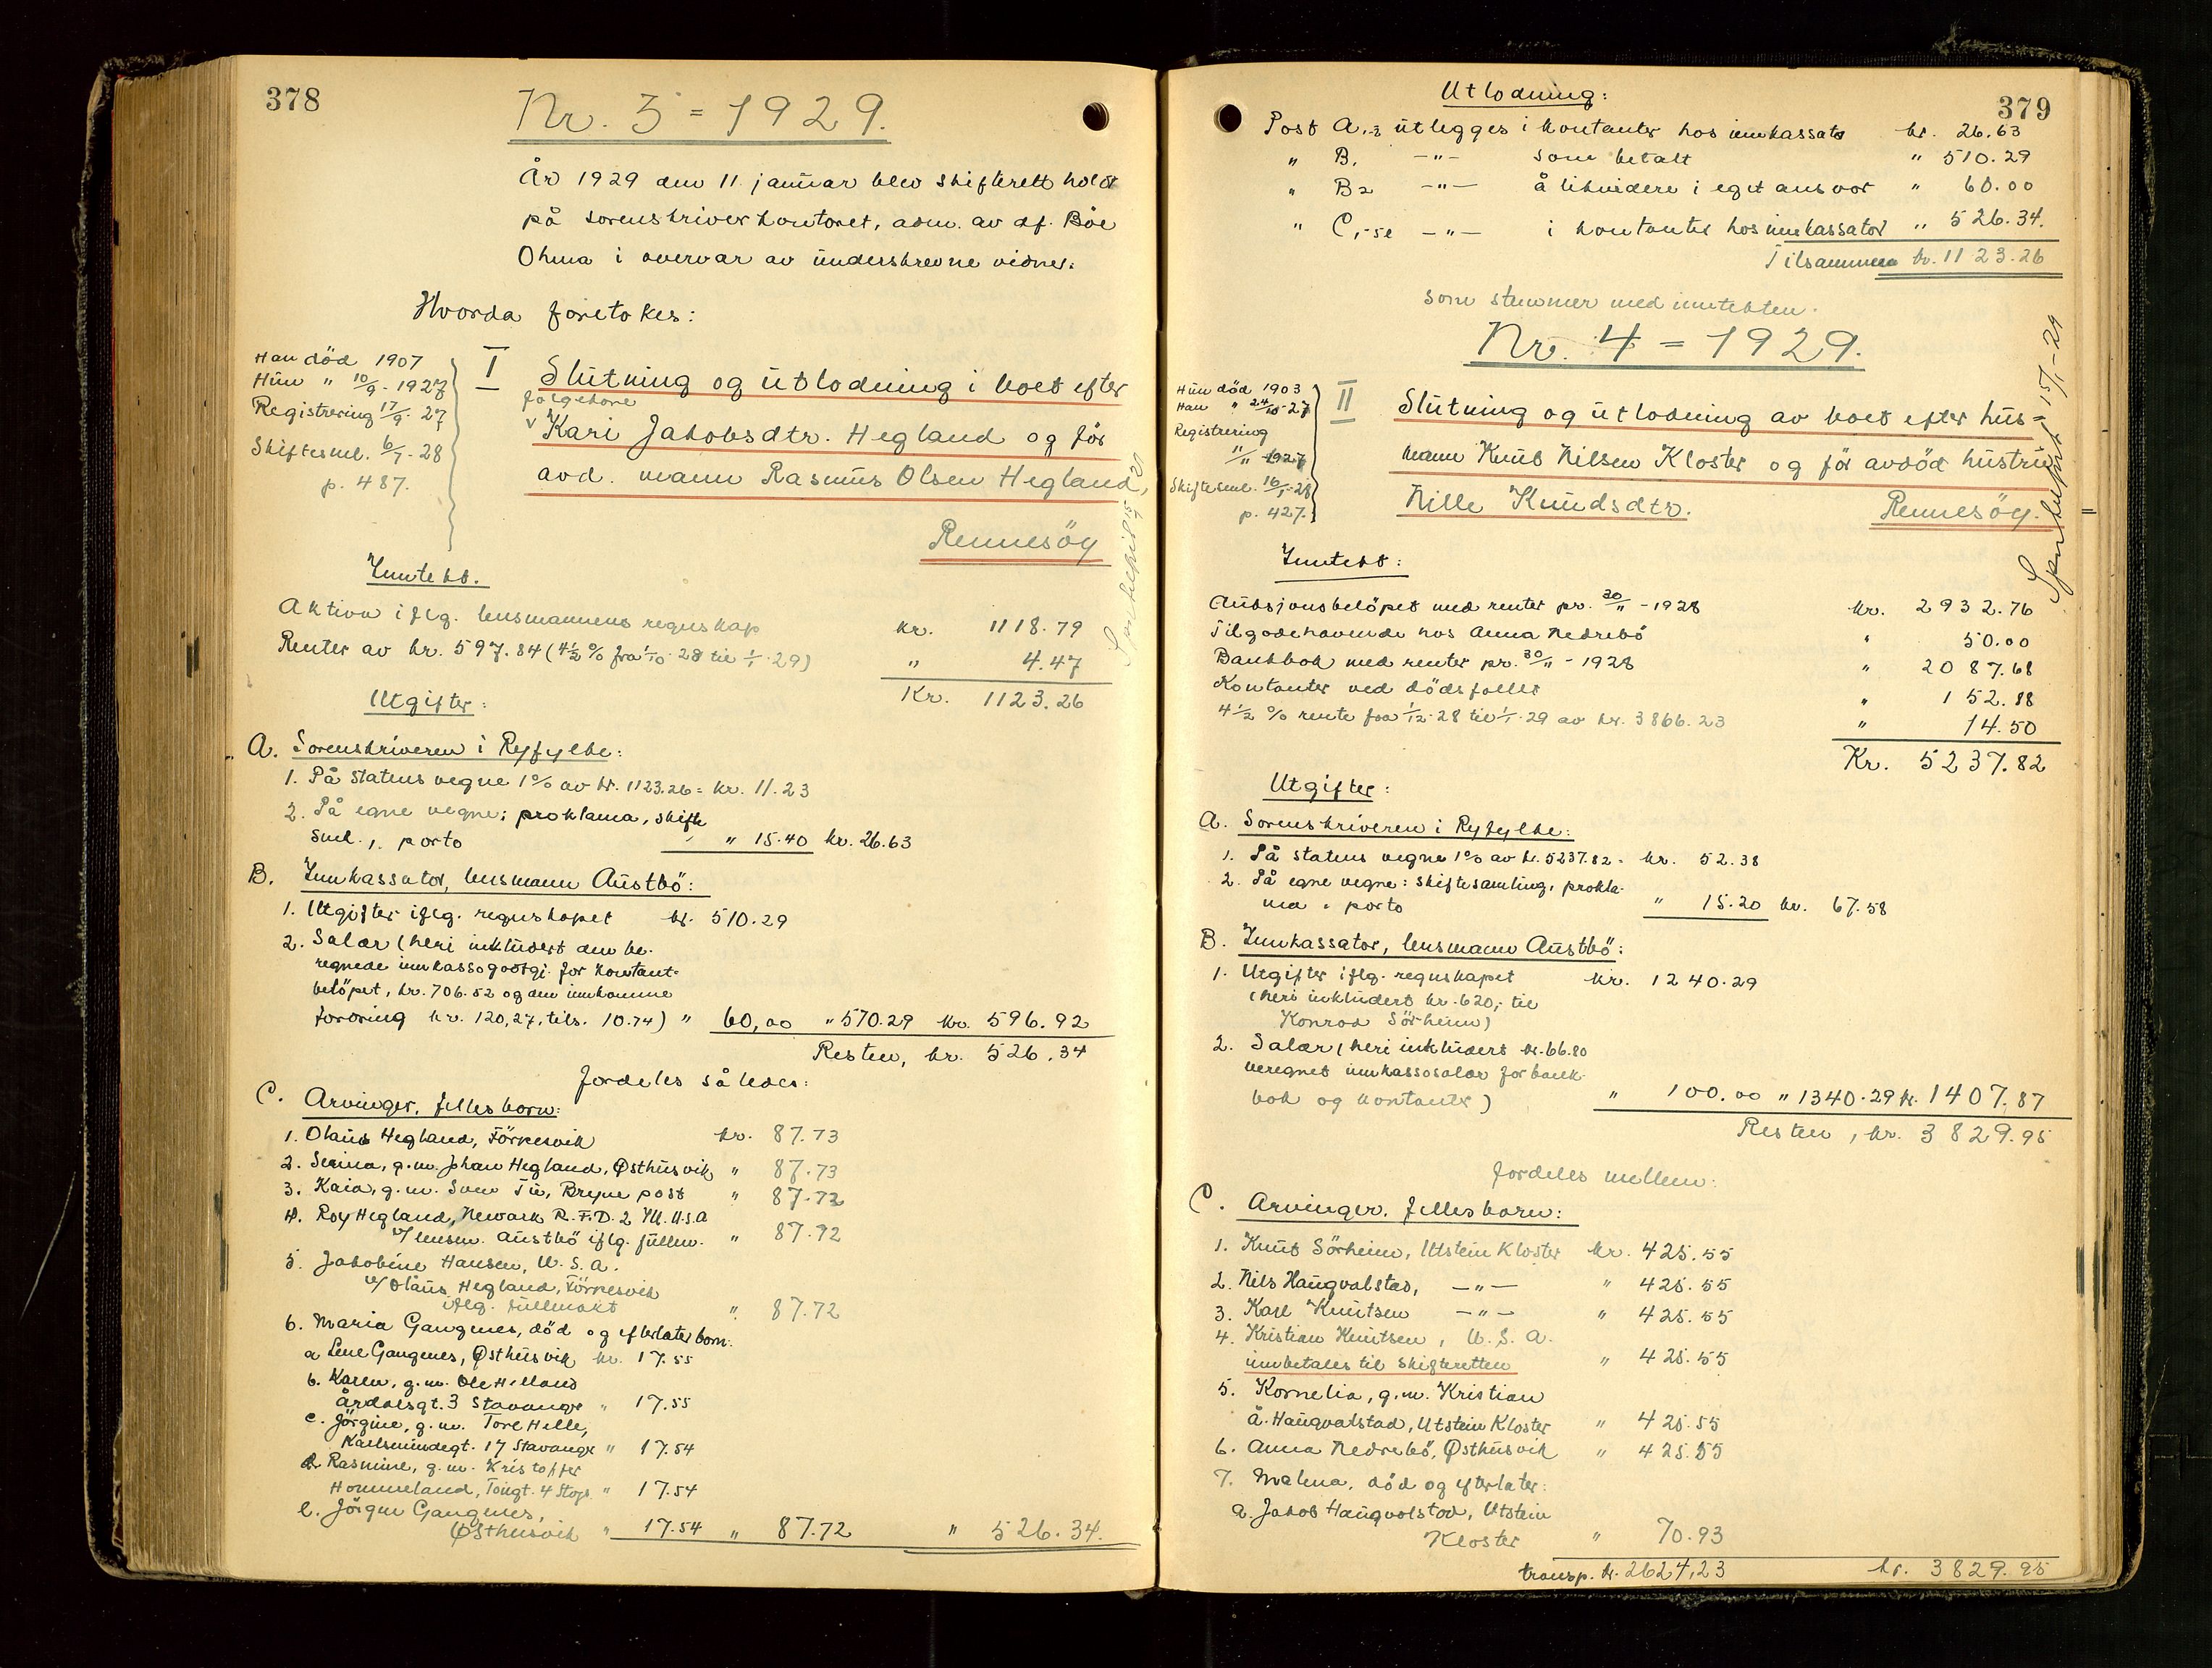 378
Nr. 3 = 1929.
År 1929 den 11. januar blev skifterett holdt
på sorenskriverkontoret, adm. av df. Böe
Ohma i overvær av underskrevne vidner.
Hvorda foretokes:
Han död 1907
Hun " 10/9 - 1927
Registrering 17/9 - 27
Skiftesml. 6/7 - 28
p. 487.
I
Slutning og utlodning i boet efter
folgekone
v Kari Jakobsdtr. Hegland og för
avd. mann Rasmus Olsen Hegland,
Rennesöy
Inntekt.
Aktiva iflg. lensmannens regnskap kr. 1118.79
Renter av kr. 597.84 (4½ % fra 1/10 - 28 til 1/1 - 29) " 4.47
Kr. 1123.26
Utgifter:
A. Sorenskriveren i Ryfylke:
1. På statens vegne 1% av kr. 1123.26 = kr. 11.23
2. På egne vegne: proklama, skifte
sml., porto " 15.40 kr. 26.63
B. Innkassator, lensmann Austbö:
1. Utgifter iflg. regnskapet kr. 510.29
2. Salær (heri inkludert den be-
regnede innkassogodtgj. for kontant-
belöpet, kr. 706.52 og den innkomne
fordring kr. 120,27, tils. 10.74) " 60,00 " 570.29 kr. 596.92
Resten, kr. 526.34
fordeles således:
C. Arvinger, fellesborn:
1. Olaus Hegland, Förresvik kr. 87.73
2. Serina, g.m. Johan Hegland, Østhusvik " 87.73
3. Kaia, g.m. Sven Tu, Bryne post " 87.72
4. Roy Hegland, Newark R.F.D. 2 Ill. U.S.A
v/ lensm. Austbö iflg. fullm. " 87.72
5. Jakobine Hansen, U.S.A.
v/ Olaus Hegland, Förresvik
iflg. fullmakt " 87.72
6. Maria Gangenes, död og efterlater born:
a Lene Gangenes, Østhusvik kr. 17.55
b. Karen, g.m. Ole Helland
Årdalsgt. 3 Stavanger " 17.55
c. Jörgine, g.m. Tore Helle,
Karlsmindegt. 17 Stavanger " 17.54
d. Rasmine, g.m. Kristoffer
Hommeland, Tougt. 4 Stvgr. " 17.54
e. Jörgen Gangenes,
Østhusvik " 17.54 " 87.72 " 526.34.
379
Utlodning:
Post A.1-2 utlegges i kontanter hos innkassator kr. 26.63
" B1 —"— som betalt " 510.29
" B2 —"— å likvidere i eget ansvar " 60.00
" C,1-5e —"— i kontanter hos innkassator " 526.34.
Tilsammen kr. 1123.26
som stemmer med inntekten.
Nr. 4 = 1929.
Hun död 1903
Han " 24/10 - 27
Registrering
11/11 - 1927
Skiftesml. 16/1 - 28
p. 427.
II
Slutning og utlodning av boet efter hus=
mann Knut Nilsen Kloster og för avdöd hustru
Nille Knudsdtr. Rennesöy.
Inntekt:
Auksjonsbelöpet med renter pr. 30/11 - 1928 kr. 2932.76
Tilgodehavende hos Anna Nedrebö " 50.00
Bankbok med renter pr. 30/11 - 1928 " 2087.68
Kontanter ved dödsfallet " 152.88
4½ % rente fra 1/12 - 28 til 1/1 - 29 av kr. 3866.23 " 14.50
Kr. 5237.82
Utgifter:
A. Sorenskriveren i Ryfylke:
1. På statens vegne 1% av kr. 5237.82 - kr. 52.38
2. På egne vegne: skiftesamling, prokla-
ma, porto " 15.20 kr. 67.58
B. Innkassator, lensmann Austbö:
1. Utgifter iflg. regnskapet kr. 1240.29
(heri inkludert kr. 620,- til
Konrad Sörheim)
2. Salær (heri inkludert kr. 66.80
beregnet innkassosalær for bank-
bok og kontanter) " 100.00 " 1340.29 kr. 1407.87
Resten, kr. 3829.95
fordeles mellem:
C. Arvinger. fellesbarn:
1. Knut Sörheim, Utstein Kloster kr. 425.55
2. Nils Haugvalstad, —"— " 425.55
3. Karl Knutsen —"— " 425.55
4. Kristian Knutsen, U.S.A.
innbetales til skifteretten " 425.55
5. Kornelia, g.m. Kristian
Å. Haugvalstad, Utstein Kloster " 425.55
6. Anna Nedrebö, Østhusvik " 425.55
7. Malena, död og efterlater:
a. Jakob Haugvalstad, Utstein
Kloster " 70.93
transp. kr. 2624,23 kr. 3829.95